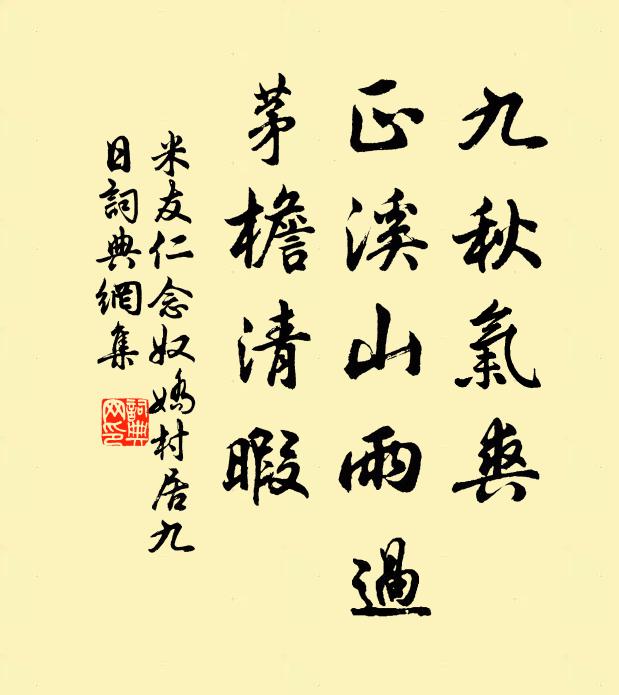 九秋氣爽
正溪山雨過
茅檐清暇
米友仁念奴嬌村居九
日詞典網集
詞典
网印